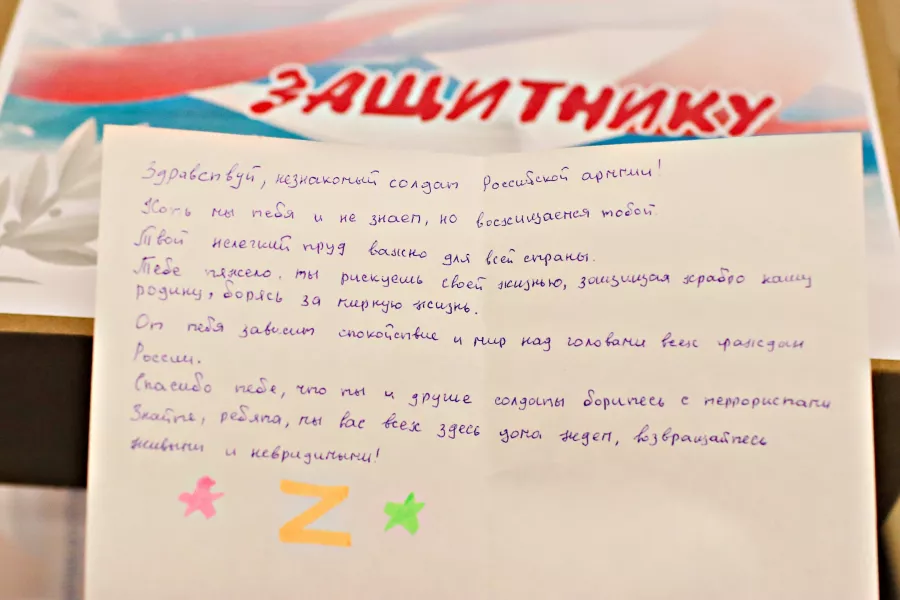 ЗАЩИТНИКУ
Здравствуй, незнакомый солдат Российской армии!
Хоть мы тебя и не знаем, но восхищаемся тобой.
Твой нелегкий труд важно для всей страны.
Тебе тяжело. ты рискуешь своей жизнью, защищая храбро нашу
родину, борясь за мирную жизнь.
От тебя зависит спокойствие и мир над головами всех граждан
России.
Спасибо тебе, что ты и другие солдаты боритесь с террористами
Знайте, ребята, мы вас всех здесь дома ждем, возвращайтесь
живыми и невридимыми!
Z